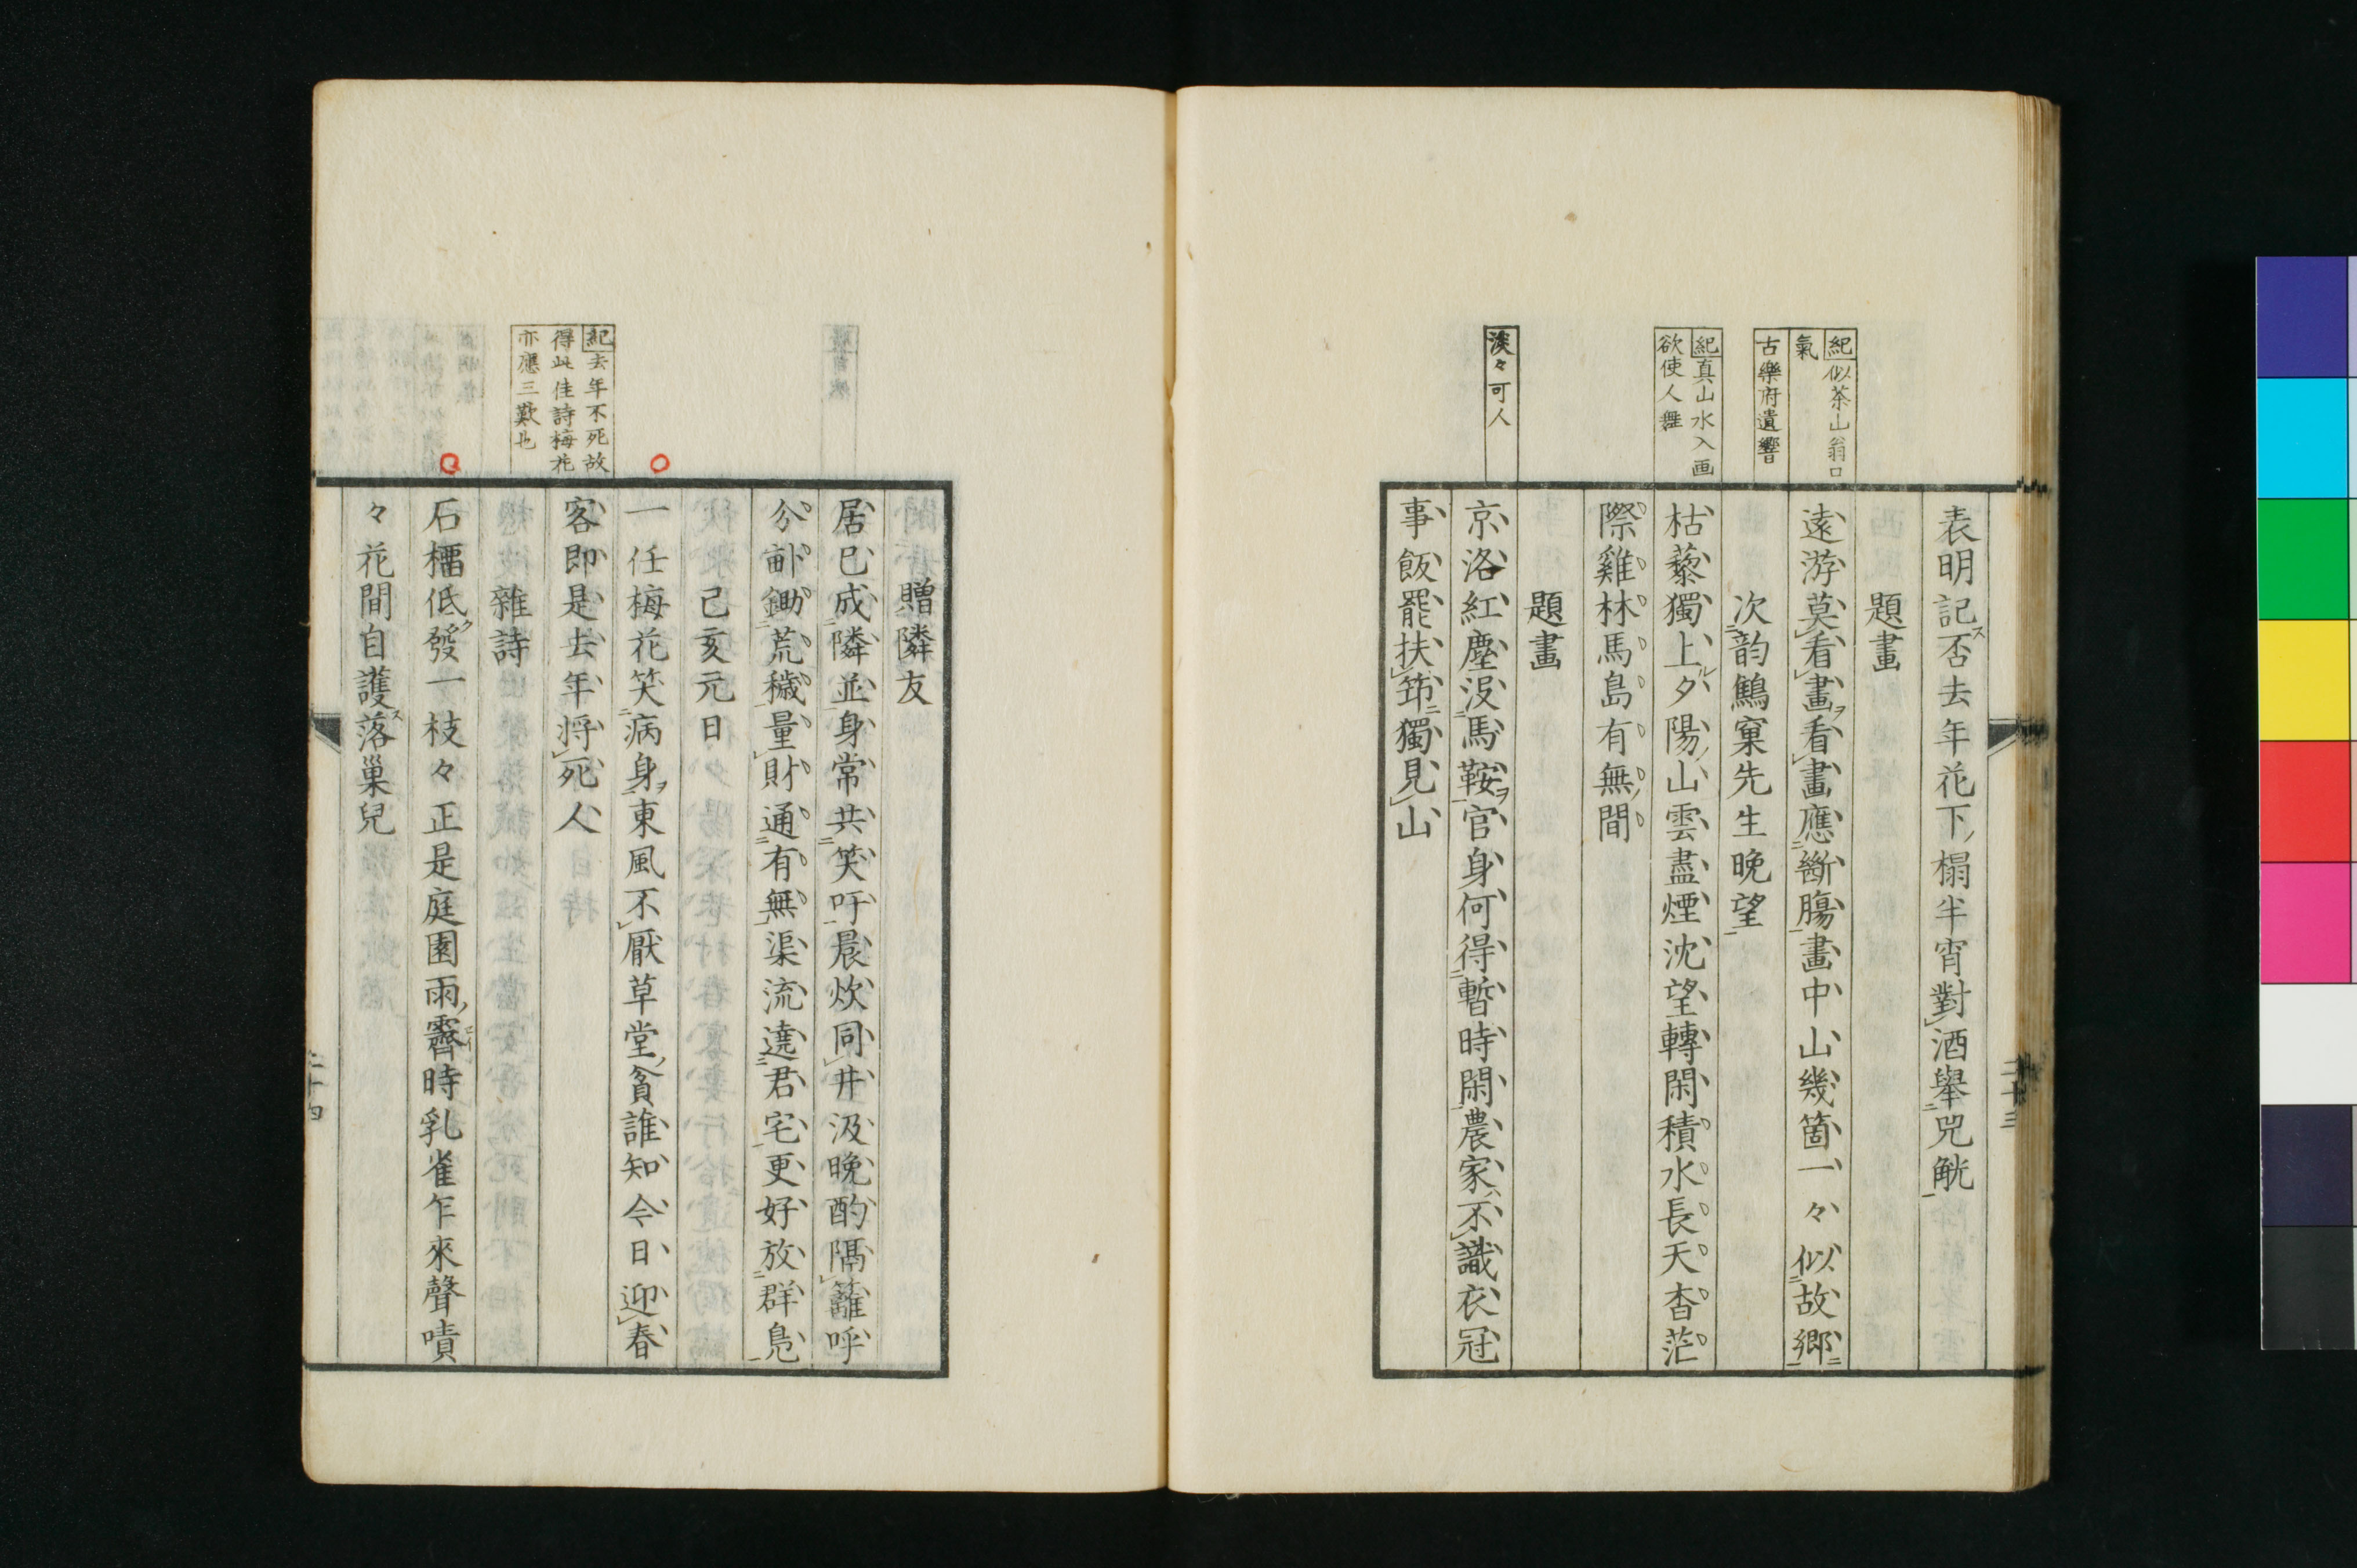 表明記否去年花下榻半宵對酒舉兕觥
題畫
遠游莫看畫看畫應斷腸畫中山幾箇一々似故鄉
次韵鷦窠先生晚望
枯藜獨上夕陽山雲盡煙沈望轉閑積水長天杳茫
際雞林馬島有無間
題畫
京洛紅塵沒馬鞍官身何得暫時閑農家不識衣冠
事飯罷扶筇獨見山
紀似茶山翁口
氣
古樂府遺響
紀真山水入画
欲使人舞
淡々可人
二十三
贈隣友
居已成隣並身常共笑吁晨炊同井汲晚酌隔籬呼
分畝鋤荒穢量財通有無渠流遶君宅更好放群鳧
己亥元日
一任梅花笑病身東風不厭草堂貧誰知今日迎春
客即是去年将死人
雜詩
石橊低發一枝々正是庭園雨霽時乳雀乍來聲嘖
々花間自護落巢兒
紀去年不死故
得此佳詩梅花
亦應三歎也
二十四